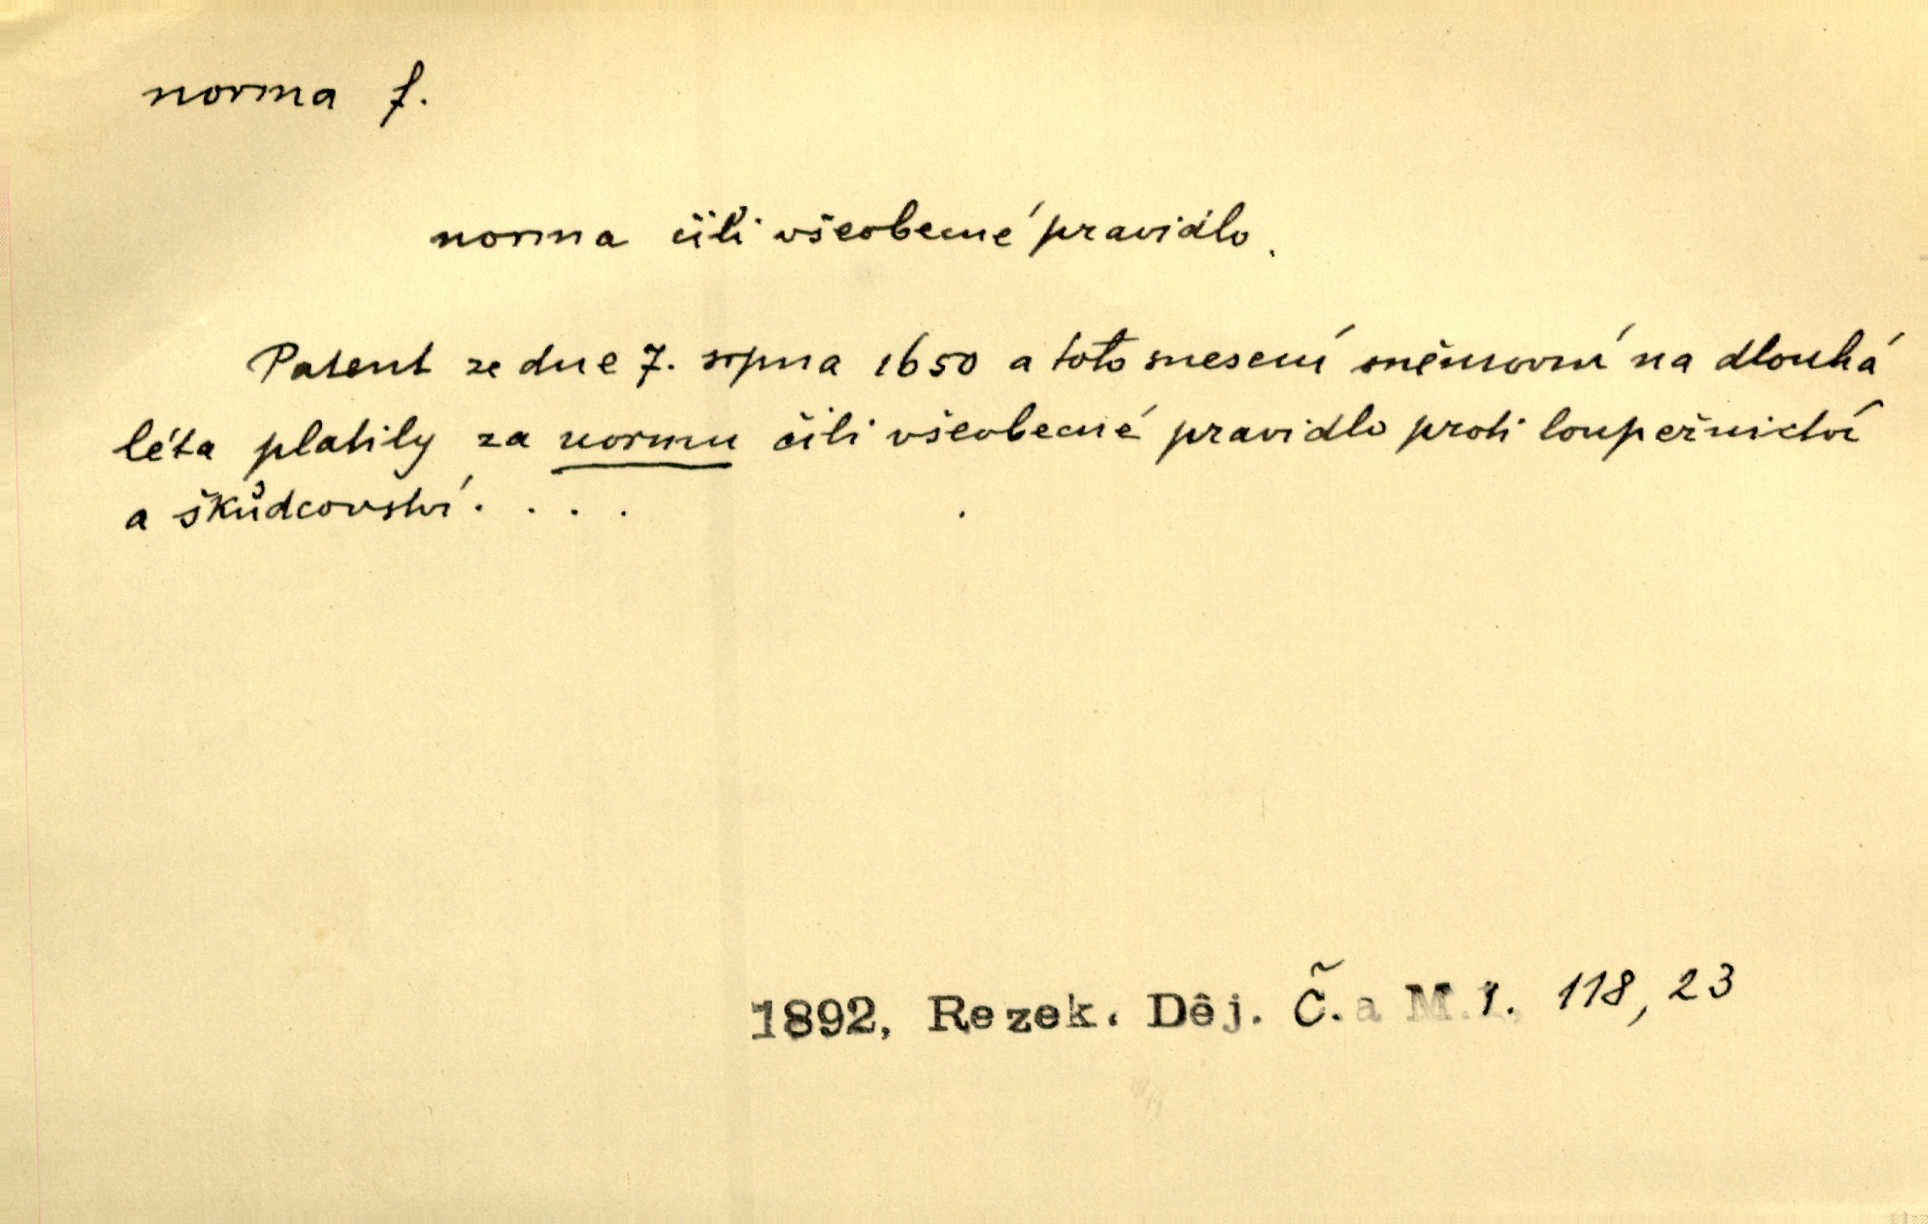 norma f.
norma čili všeobecné pravidlo.
Patent ze dne 7. srpna 1650 a toto snesení sněmovní na dlouhá
léta platily za normu čili všeobecné pravidlo proti loupežnictví
a škůdcovství. . . .
1892, Rezek. Děj. Č. a M. 1. 118, 23